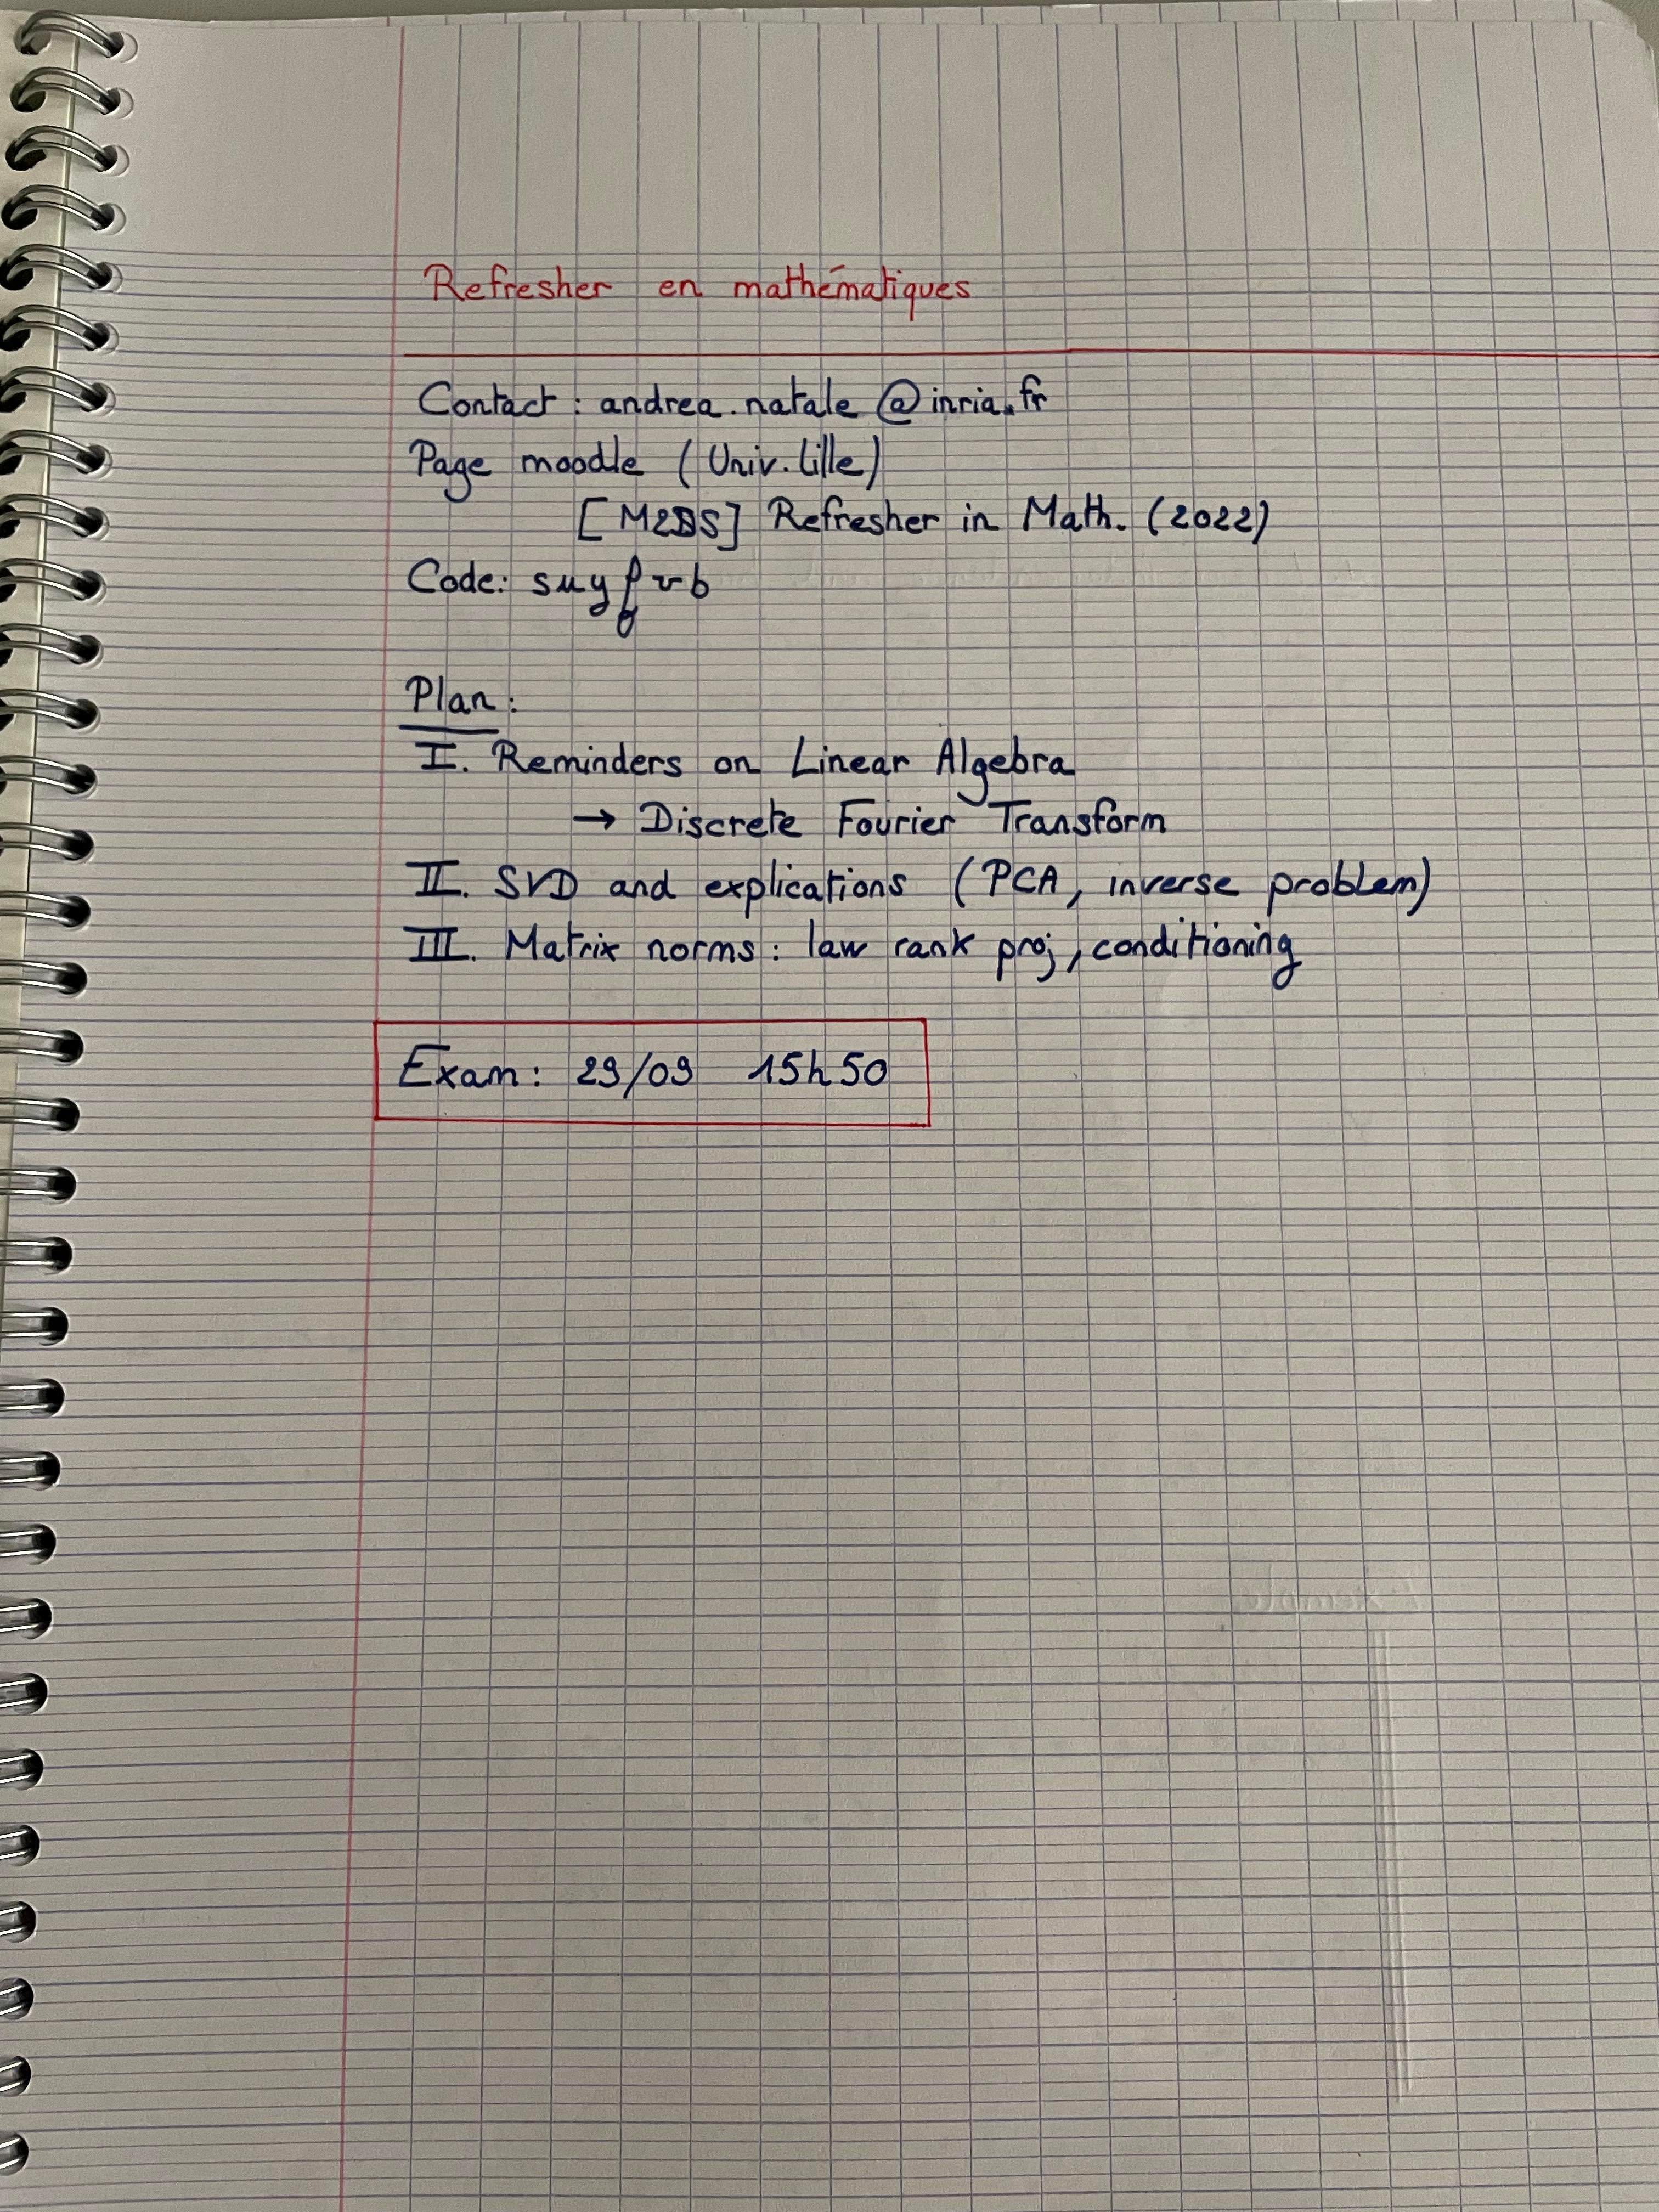 Refresher en mathématiques
Contact : andrea.natale @inria.fr
Page moodle (Univ. Lille)
[M2DS] Refresher in Math. (2022)
Code: suyfvb
Plan :
I. Reminders on Linear Algebra
→ Discrete Fourier Transform
II. SVD and explications (PCA, inverse problem)
III. Matrix norms : law rank proj, conditioning
Exam : 29/09 15h50